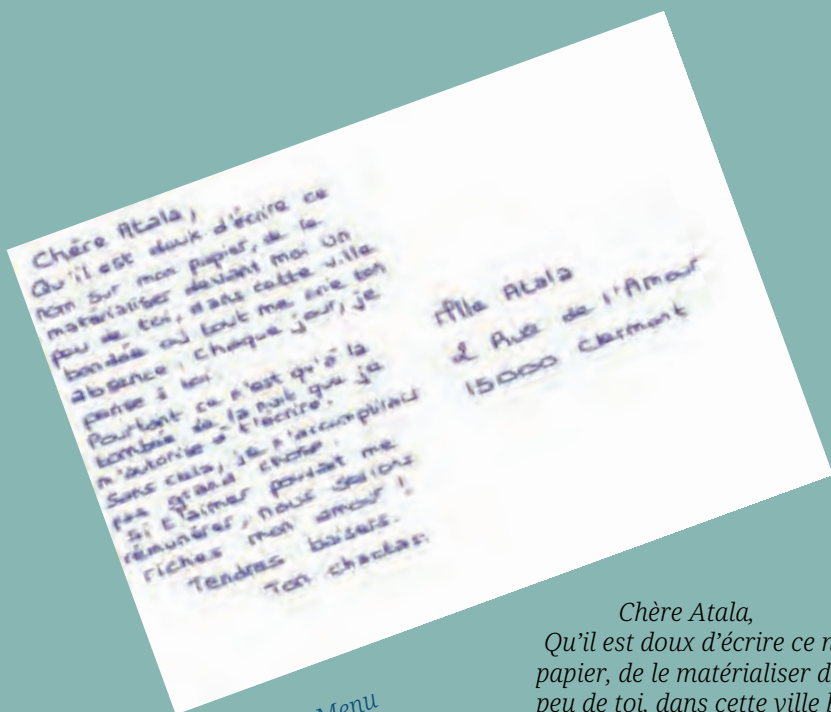 Chère Atala,
Qu'il est doux d'écrire ce
nom sur mon papier, de le
matérialiser devant moi un
peu de toi, dans cette ville
bondée où tout me crie ton
absence ; chaque jour, je
pense à toi.
Pourtant ce n'est qu'à la
tombée de la nuit que je
m'autorise à t'écrire.
Sans cela, je n'accomplirais
pas grand chose.
Si t'aimer pouvait me
rémunérer, nous serions
riches mon amour !
Tendres baisers.
Ton Chactas.
Mlle Atala
2 Rue de l'Amour
15000 Clermont
Menu
Chère Atala,
Qu’il est doux d’écrire ce
papier, de le matérialiser
peu de toi, dans cette ville